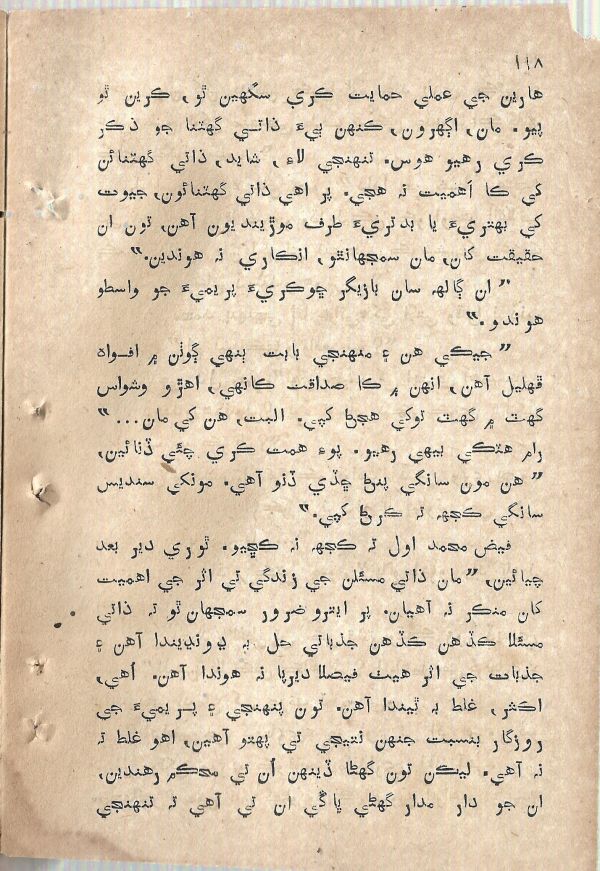 ١١٨
هارين جي عملي حمايت ڪري سگهين ٿو، ڪرين ٿو
پيو. مان، اڳهرون، ڪنهن ٻيءَ ذاتي گهٽنا جو ذڪر
ڪري رهيو هوس. تنهنجي لاءِ، شايد، ذاتي گهٽنائن
کي ڪا اَهميت نہ هجي. پر اهي ذاتي گهٽنائون، جيوت
کي بهتريءَ يا بدتريءَ طرف موڙينديون آهن، تون ان
حقيقت کان، مان سمجهانٿو، انڪاري نہ هوندين.“
”ان ڳالهہ سان بازيگر ڇوڪريءَ پريميءَ جو واسطو
هوندو.“
”جيڪي هن ۽ منهنجي بابت ٻنهي ڳوٺن ۾ افواہ
ڦهليل آهن، انهن ۾ ڪا صداقت ڪانهي، اهڙو وشواس
گهٽ ۾ گهٽ توکي هجڻ کپي. البت، هن کي مان...“
رام هٽڪي بيهي رهيو. پوءِ همت ڪري چئي ڏنائين،
”هن مون سانگي پنڻ ڇڏي ڏنو آهي. مونکي سنديس
سانگي ڪجهہ نہ ڪرڻ کپي.“
فيض محمد اول تہ ڪجهہ نہ ڪڇيو. ٿوري دير بعد
چيائين، ”مان ذاتي مسئلن جي زندگي تي اثر جي اهميت
کان منڪر نہ آهيان. پر ايترو ضرور سمجهان ٿو تہ ذاتي
مسئلا ڪڏهن ڪڏهن جذباتي حل بہ ڍونڍيندا آهن ۽
جذبات جي اثر هيٺ فيصلا ديرپا نہ هوندا آهن. اُهي،
اڪثر، غلط بہ ٿيندا آهن. تون پنهنجي ۽ پريميءَ جي
روزگار بنسبت جنهن نتيجي تي پهتو آهين، اهو غلط تہ
نہ آهي. ليڪن تون گهڻا ڏينهن اُن تي محڪم رهندين،
ان جو دار مدار گهڻي ڀاڱي ان تي آهي تہ تنهنجي